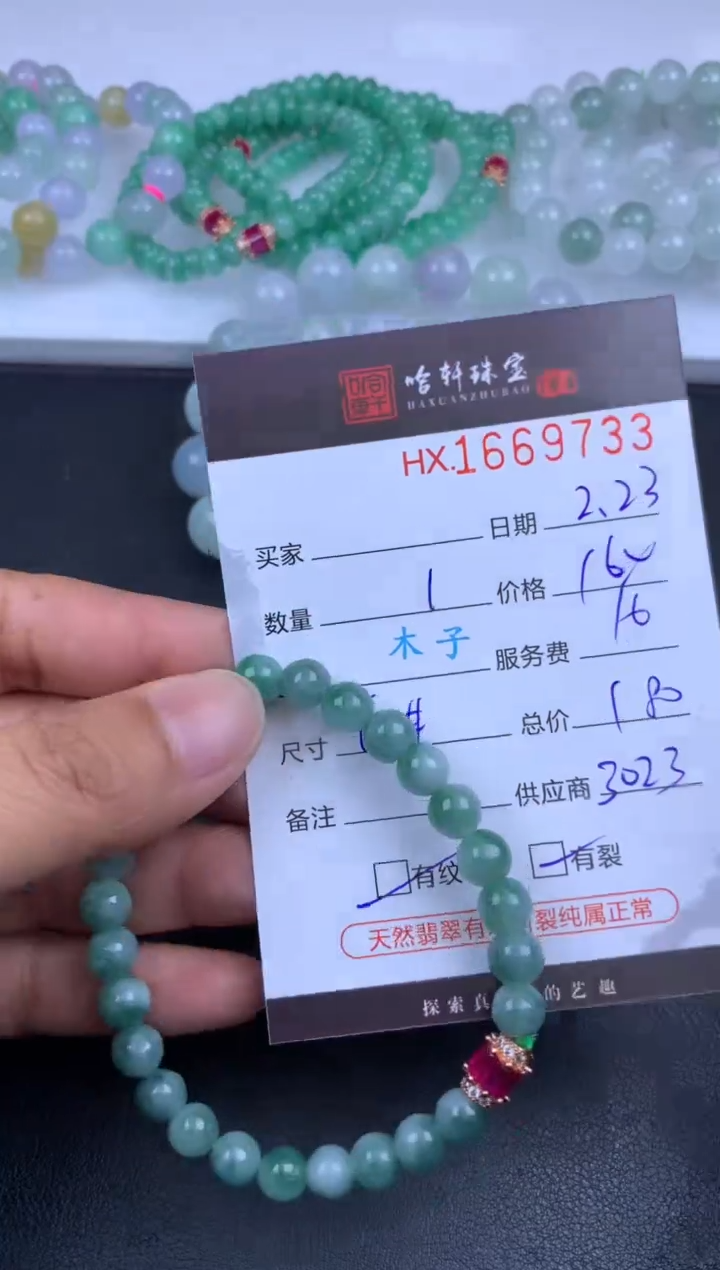 哈轩珠宝
HAXUANZHUBAO
HX.1669733
买家 日期 2.23
数量 1 价格 160
木子 服务费 16
尺寸 总价 180
备注 供应商 3023
有纹 有裂
天然翡翠有 裂纯属正常
探索真 的艺趣